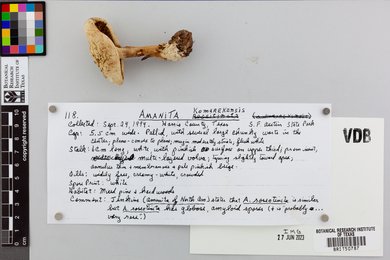 118.
AMANITA Komarekensis
Collected: Sept. 29, 1994. Harris County, Texas S.F. Austin State Park
Cap: 5.5 cm wide. Pallid, with several large chunky warts in the
center; plano-convex to plane; margin moderately striate, flesh white
Stalk: 6 cm long, white with pinkish on upper third;
multi-layered volva; tapering slightly toward apex;
annulus thin & membranous & pale pinkish beige.
Gills: widely free, creamy-white, crowded
Spore Print: white
Habitat: Mixed pines & hardwoods
Comment: Jenkins (Amanita of North Am.) states that A. roseotincta is similar
but A. roseotincta has globose, amyloid spores (& is probably
very rare.)
VDB
IMG
27 JUN 2023
BOTANICAL RESEARCH INSTITUTE
OF TEXAS
BRIT50787
BOTANICAL
RESEARCH
INSTITUTE
OF TEXAS